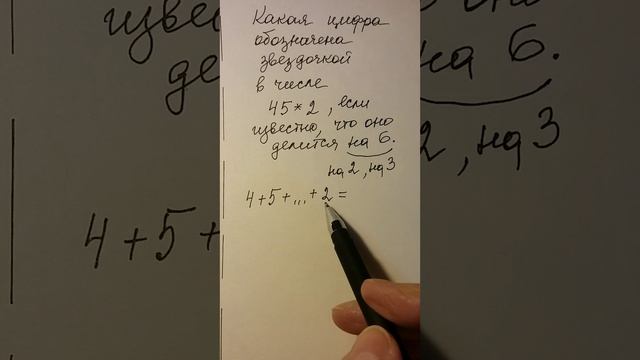 Какая цифра
обозначена
звездочкой
в числе
45*2, если
известно, что оно
делится на 6.
на 2, на 3
4+5+...+2=